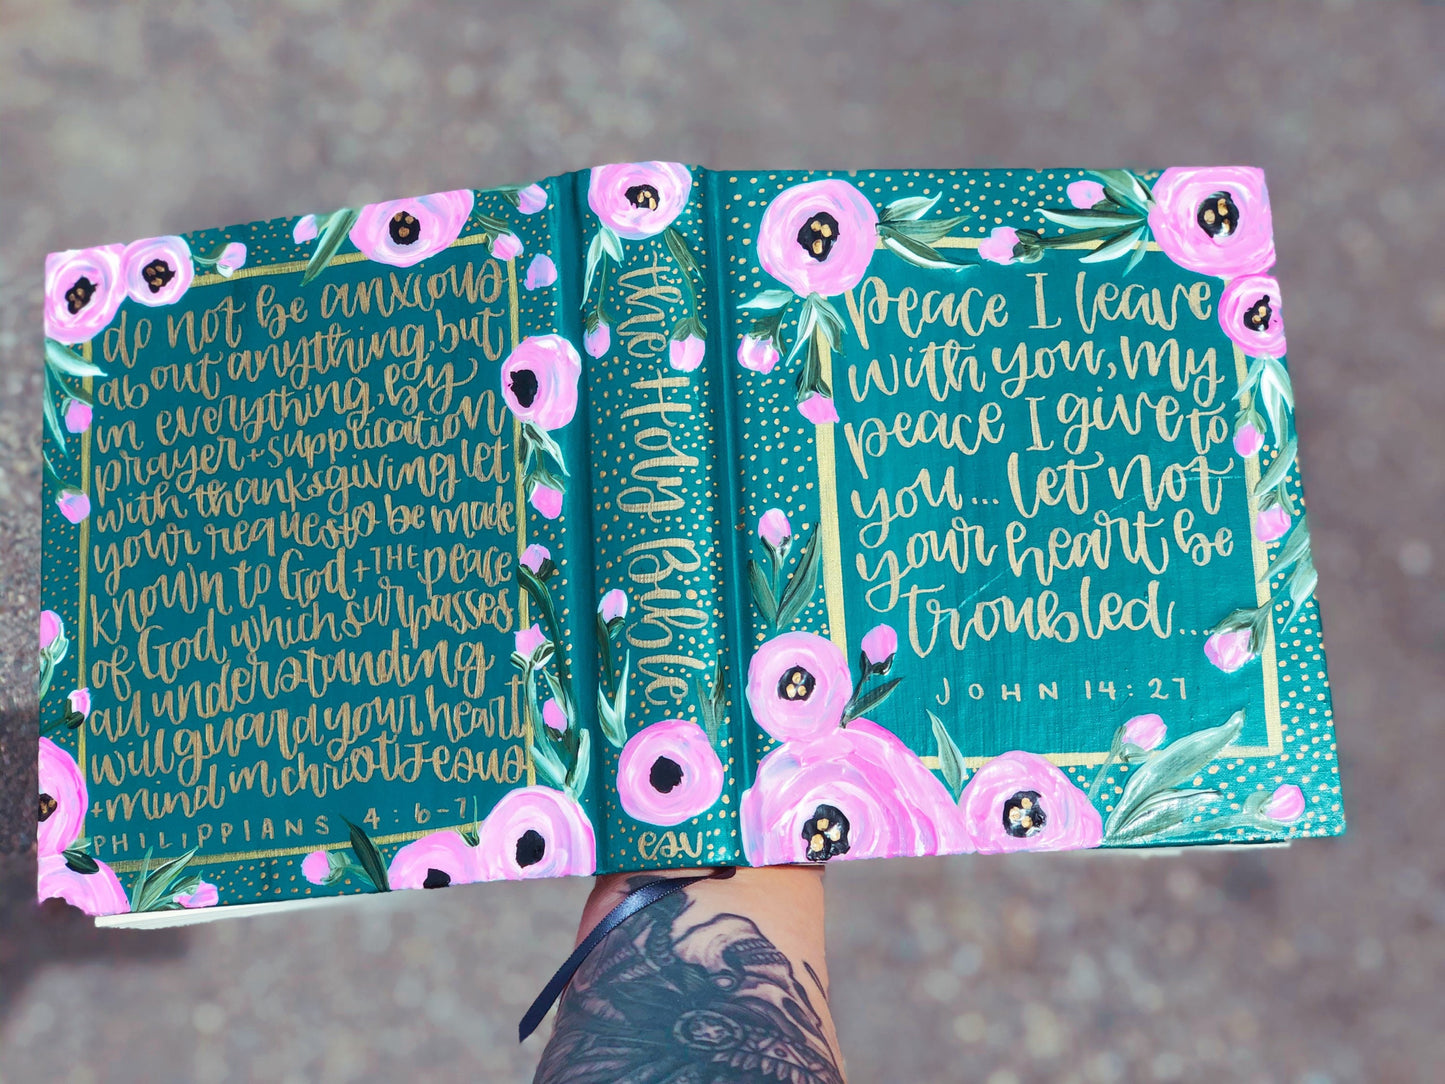 do not be anxious
about anything, but
in everything, by
prayer + supplication
with thanksgiving let
your requests be made
known to God + THE peace
of God, which surpasses
all understanding
will guard your heart
+ mind in christ Jesus
PHILIPPIANS 4:6-7
the Holy Bible
esv
peace I leave
with you, my
peace I give to
you... let not
your heart be
troubled...
JOHN 14:27